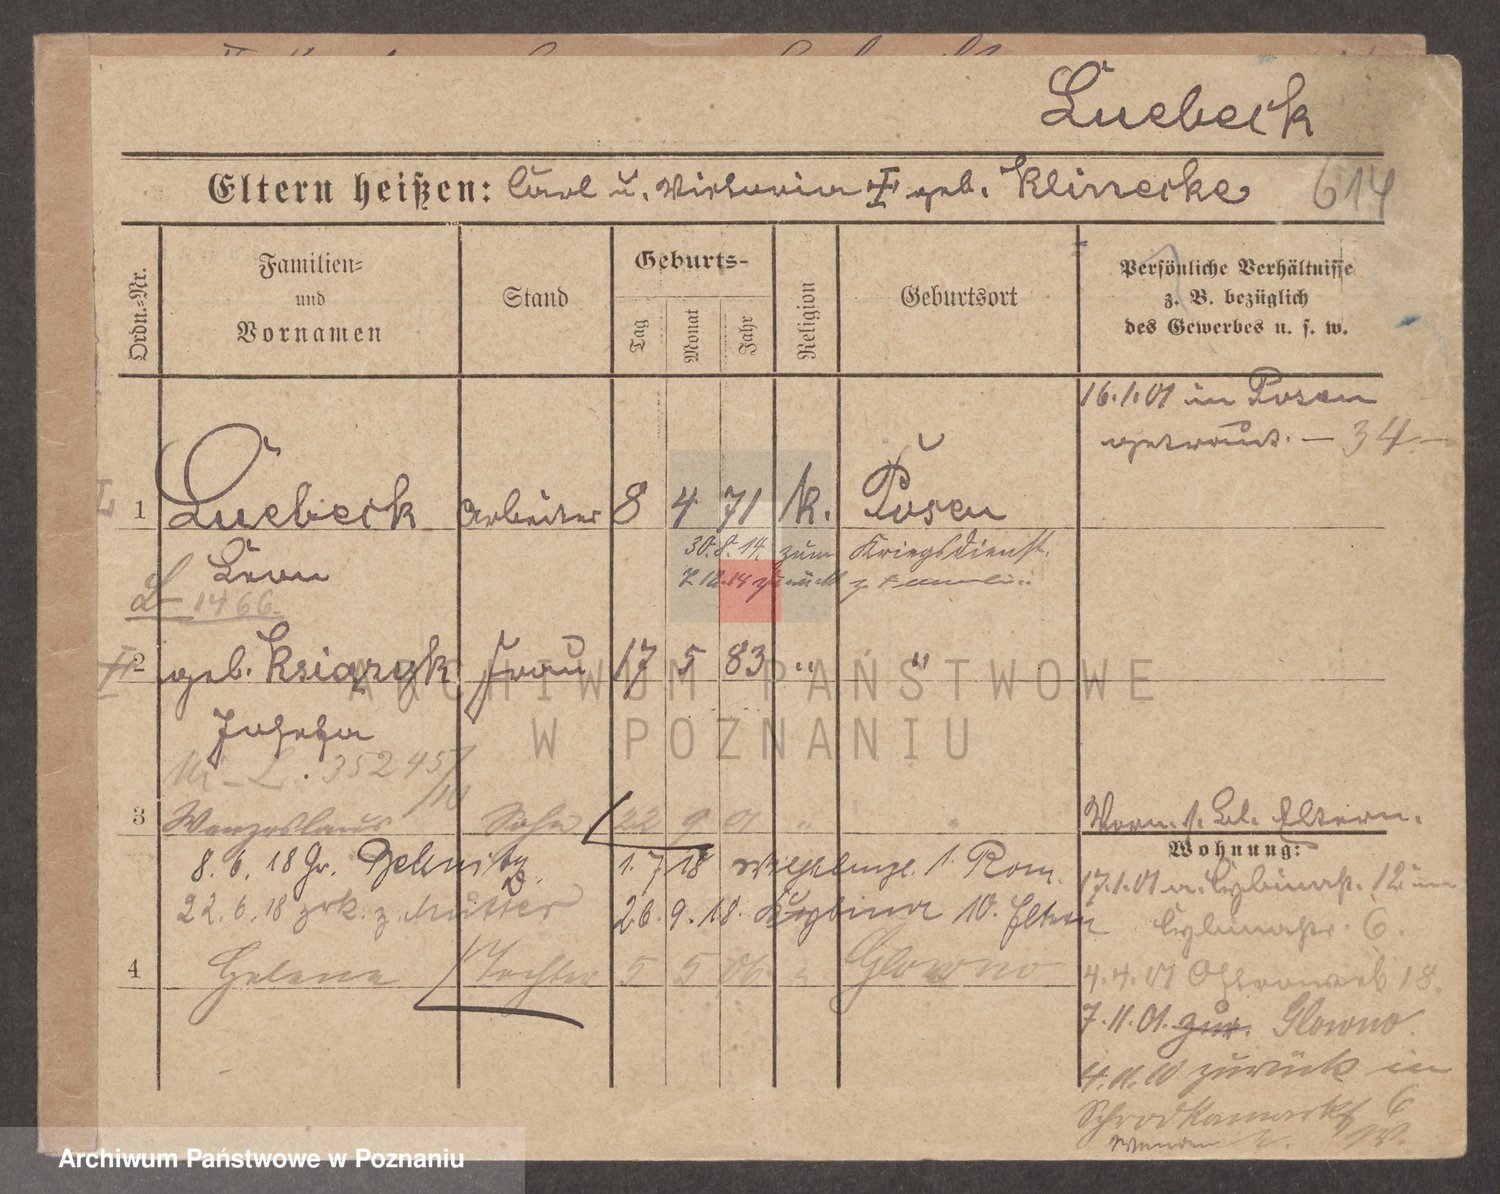 Luebeck
Eltern heißen: Carl u. Victoria geb. Klinecke 614
Ordn.-Nr.
Familien-
und
Vornamen
Stand
Geburts-
Tag
Monat
Jahr
Religion
Geburtsort
Persönliche Verhältnisse
z. B. bezüglich
des Gewerbes u. s. w.
16.1.01 in Posen
getraut. — 34 —
1 Luebeck Arbeiter 8 4 71 k. Posen
30.8.14. zum Kriegsdienst.
Leon
7.12.14 zurück z Familie
L 1466.
2 geb. Ksiązyk Frau 17 5 83 " "
Josefa
L. 35245/10
3 Wenzeslaus Sohn 22 9 01 " "
Vorn. s. bl. Eltern.
Wohnung:
8.6.18 Gr. 1.7.18 1. Rom.
17.1.01 a. Cybinastr. 12 in
22.6.18 zrk. z Mutter 26.9.18. Cybina 10. Eltern
Cybinastr. 6.
4 Helene Tochter 5 5 06 " Glowno
4.4.01 Ostrowek 18.
7.11.01. zur. Glowno
4.11.10 zurück in
Schrodkamarkt 6
Wenden
ARCHIWUM PAŃSTWOWE
W POZNANIU
Archiwum Państwowe w Poznaniu